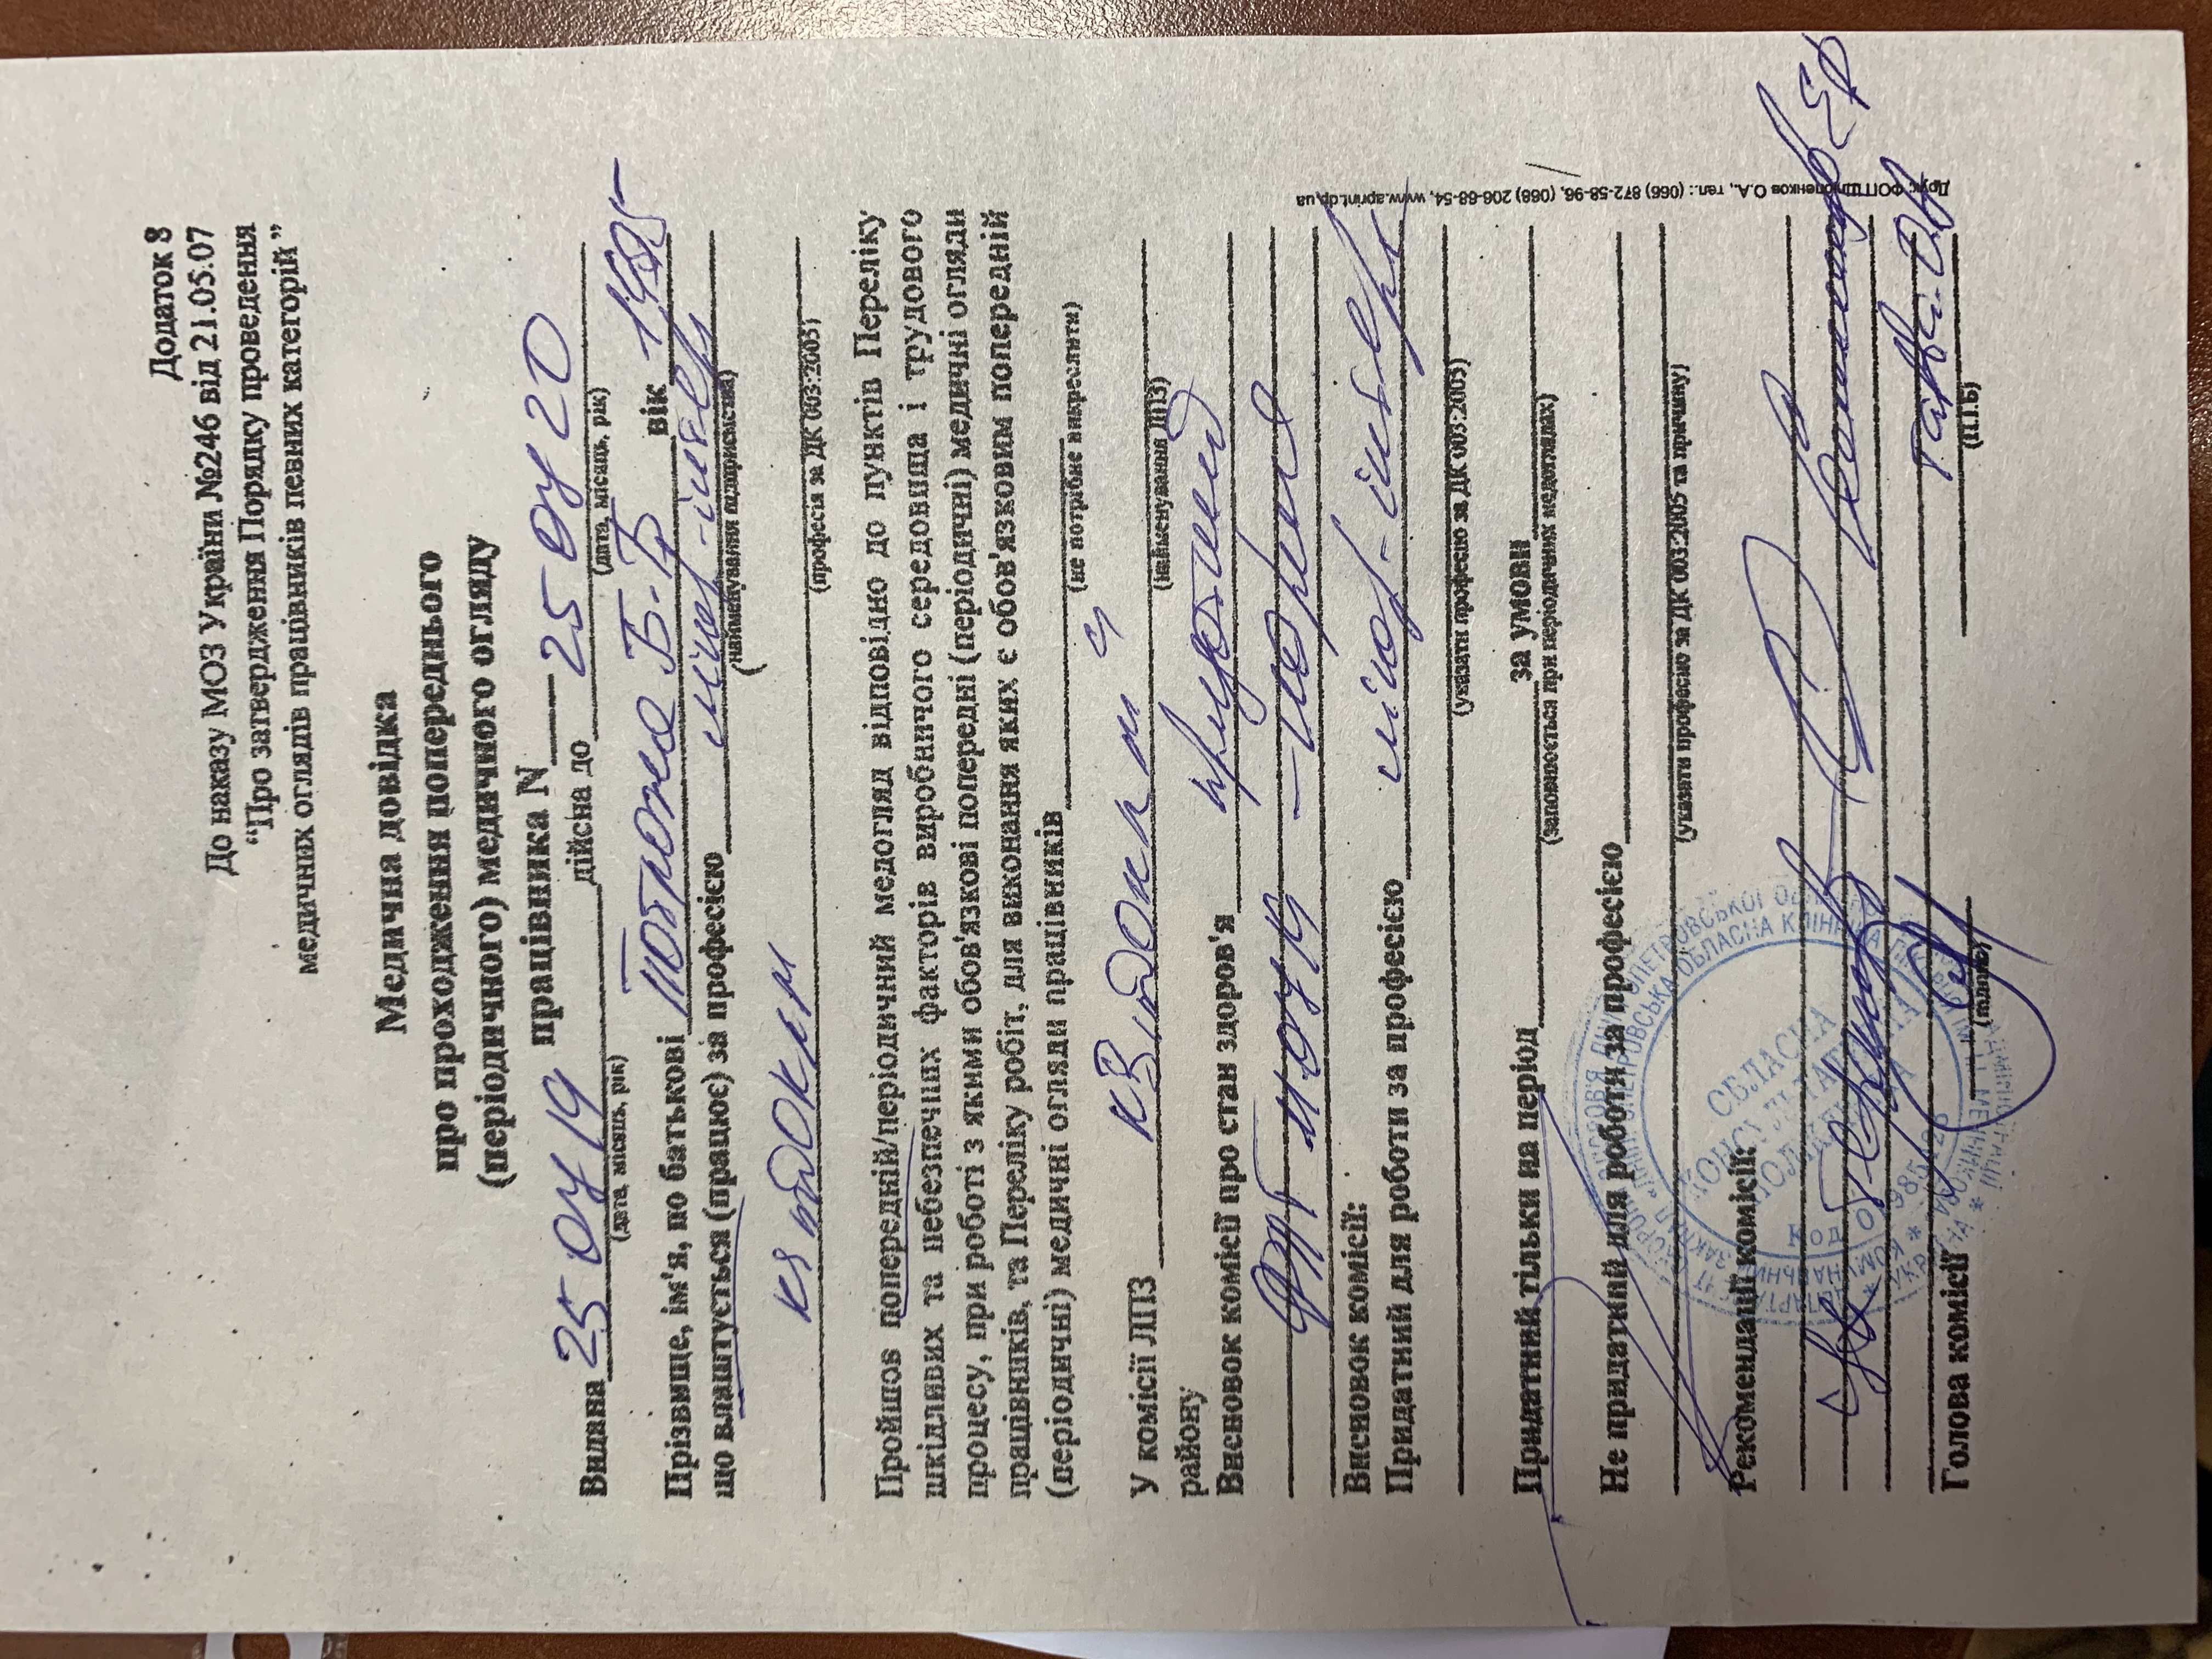 Додаток 8
До наказу МОЗ України №246 від 21.05.07
“Про затвердження Порядку проведення
медичних оглядів працівників певних категорій”
Медична довідка
про проходження попереднього
(періодичного) медичного огляду
працівника N____
Видана 25 07 19 дійсна до 25 07 20
(дата, місяць, рік) (дата, місяць, рік)
Прізвище, ім'я, по батькові Б.Б вік 1995
що влаштується (працює) за професією лікар-інтерн
(найменування підприємства)
КЗ "ДОКЛ ім
(професія за ДК 003:2005)
Пройшов попередній/періодичний медогляд відповідно до пунктів Переліку
шкідливих та небезпечних факторів виробничого середовища і трудового
процесу, при роботі з якими обов'язкові попередні (періодичні) медичні огляди
працівників, та Переліку робіт, для виконання яких є обов'язковим попередній
(періодичні) медичні огляди працівників
(не потрібне викреслити)
У комісії ЛПЗ КЗ "ДОКЛ ім
(найменування ЛПЗ)
району
Висновок комісії про стан здоров'я придатний
ФЛГ 11.07.19 – норма
Висновок комісії:
Придатний для роботи за професією лікар-інтерн
(указати професію за ДК 003:2005)
Придатний тільки на період за умови
(заповнюється при періодичних медоглядах)
Не придатний для роботи за професією
(указати професію за ДК 003:2005 та причину)
Рекомендації комісії:
Голова комісії
(підпис) (П.І.Б)
ОБЛАСНА
КОНСУЛЬТАТИВНА
ПОЛІКЛІНІКА
Друк: ФОП Шкопенков О.А., тел.: (066) 872-58-96, (068) 206-68-54, www.aprint.dp.ua